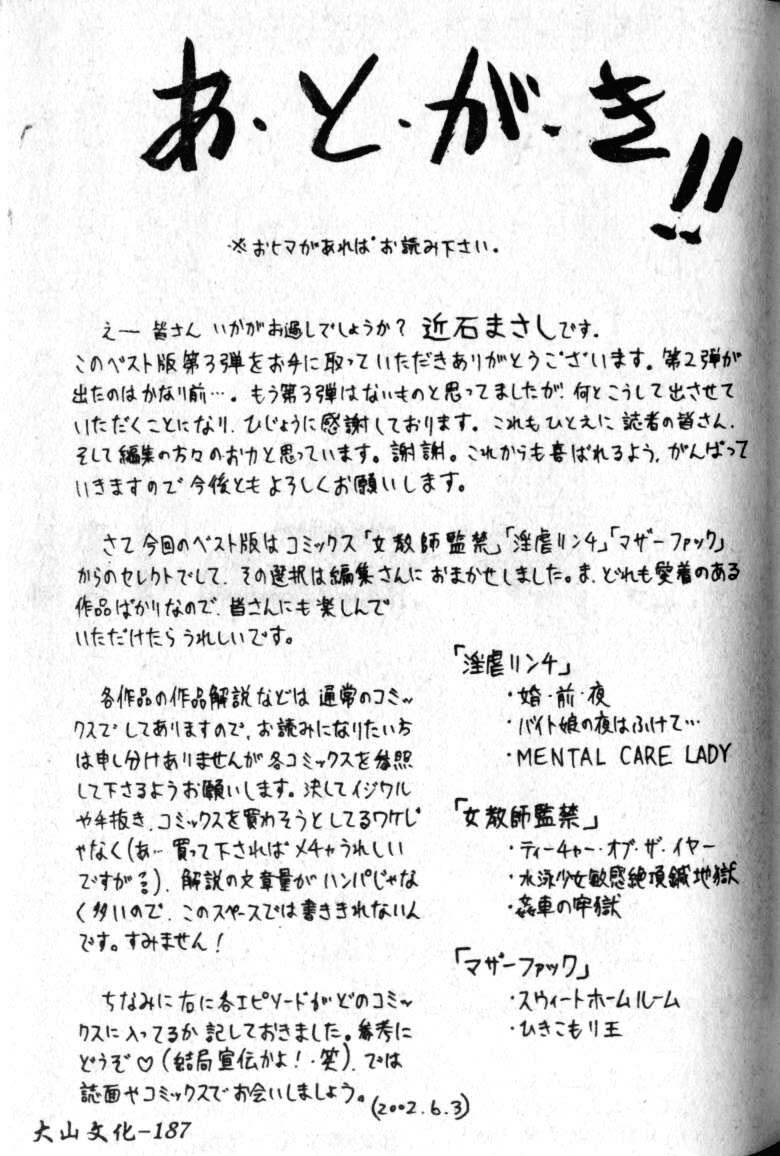 あ・と・が・き!!
※おヒマがあればお読み下さい。
え― 皆さん いかがお過しでしょうか? 近石まさしです.
このベスト版第3弾をお手に取っていただきありがとうございます。第2弾が
出たのはかなり前…。もう第3弾はないものと思ってましたが! 何とこうして出させて
いただくことになり、ひじょうに感謝しております。これもひとえに読者の皆さん、
そして編集の方々のお力と思っています。謝謝。これからも喜ばれるよう、がんばって
いきますので今後ともよろしくお願いします。
さて今回のベスト版はコミックス「女教師監禁」「淫虐リンチ」「マザーファック」
からのセレクトでして、その選択は編集さんにおまかせしました。ま、どれも愛着のある
作品ばかりなので、皆さんにも楽しんで
いただけたらうれしいです。
各作品の作品解説などは 通常のコミッ
クスでしてありますので、お読みになりたい方
は申し分けありませんが各コミックスを参照
して下さるようお願いします。決してイジワル
や手抜き、コミックスを買わそうとしてるワケじ
ゃなく(あ… 買って下さればメチャうれしい
ですが)、解説の文章量がハンパじゃな
く多いので、このスペースでは書ききれないん
です。すみません!
ちなみに右に各エピソードがどのコミッ
クスに入ってるか記しておきました。参考に
どうぞ♡(結局宣伝かよ!・笑)、では
誌面やコミックスでお会いしましょう。
(2002.6.3)
「淫虐リンチ」
・婚・前・夜
・バイト娘の夜はふけて…
・MENTAL CARE LADY
「女教師監禁」
・ティーチャー・オブ・ザ・イヤー
・水泳少女敏感絶頂鍼地獄
・姦車の牢獄
「マザーファック」
・スウィートホームルーム
・ひきこもり王
大山文化-187